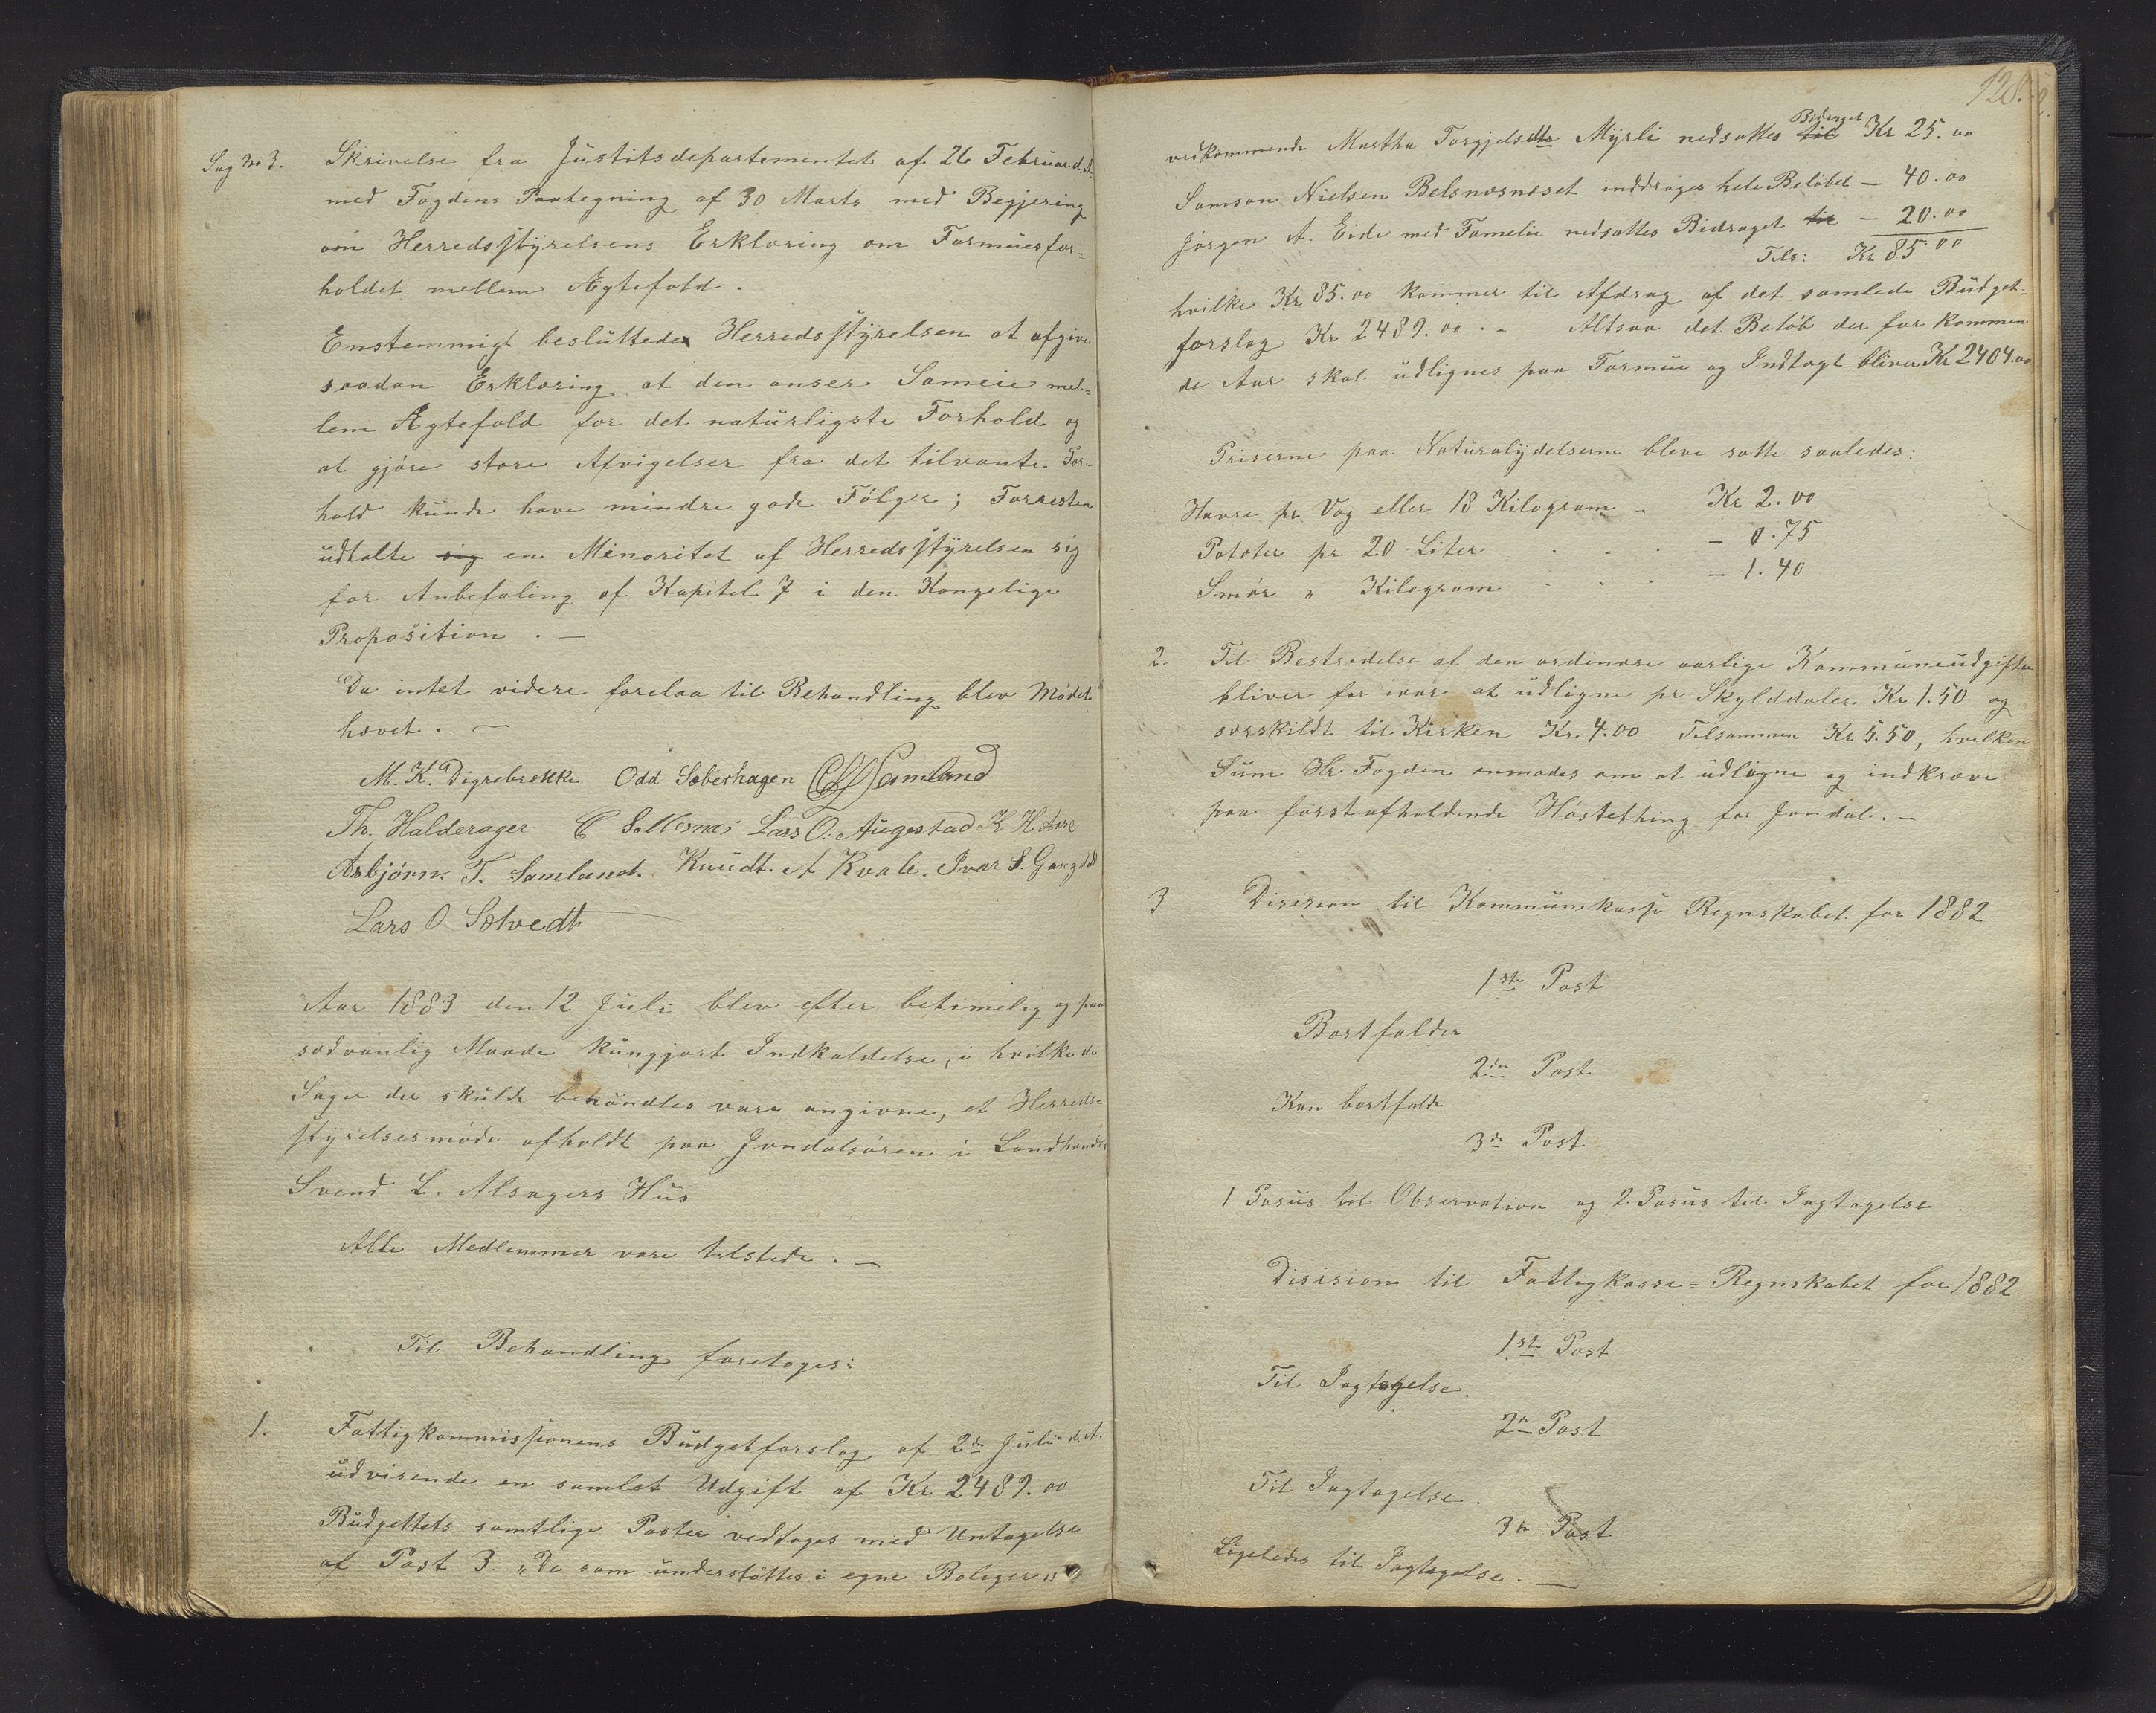 Sag No 3. Skrivelse fra Justitsdepartementet af 26 Februar d. A.
med Fogdens Paategning af 30 Marts med Begjering
om Herredsstyrelsens Erklæring om Formuesfor=
holdet mellem Ægtefold.
Enstemmigt besluttede Herredsstyrelsen at afgive
saadan Erklæring at den anser Sameie mel=
lem Ægtefold for det naturligste Forhold og
at gjöre store Afvigelser fra det tilvante For-
hold kunde have mindre gode Fölger; Forresten
udtalte sig en Minoritet af Herredsstyrelsen sig
for Anbefaling af Kapitel 7 i den Kongelige
Proposition. —
Da intet videre forelaa til Behandling blev Mödet
hævet. —
M. K. Digrebrekke Odd Sæbershagen Samland
Th. Halderager C Sollesnes Lars O. Augestad K H Aase
Asbjörn T. Samland. Knudt. A Kvale. Ivar S.
Lars O Solvedt
Aar 1883 den 12 Juli blev efter betimelig og paa
sedvanlig Maade kungjort Indkaldelse, i hvilke de
Sager der skulde behandles vare angivne, et Herreds=
styrelsesmöde afholdt paa Jondalsören i Landhandler
Svend L. Alsagers Hus
Alle Medlemmer vare tilstede. —
Til Behandling foretages:
1. Fattigkommissionens Budgetforslag af 2de Juli d. A.
udvisende en samlet Udgift af Kr 2489.00
Budgettets samtlige Poster vedtages med Untagelse
af Post 3. „De som understöttes i egne Boliger"
128.
vedkommende Martha Torgjelsdtr Myrli nedsattes til Bidraget Kr 25.00
Samson Nielsen Belsnæsnæset inddrages hele Beløbet — 40.00
Jörgen A. Eide med Familie nedsattes Bidraget til — 20.00
Tils: Kr 85.00
hvilke Kr 85.00 kommer til Afdrag af det samlede Budget-
forslag Kr 2489.00. - Altsaa det Belöb der for kommen
de Aar skal udlignes paa Formue og Indtægt bliver Kr 2404.00
Priserne paa Naturalydelserne bleve satte saaledes:
Havre pr Vog eller 18 Kilogram - Kr 2.00
Poteter pr 20 Liter . . . — 0.75
Smör „ Kilogram . . . — 1.40
2. Til Bestridelse af den ordinære aarlige Kommuneudgifter
bliver for iaar at udligne pr Skylddaler Kr 1.50 og
særskildt til Kirken Kr 4.00 Tilsammen Kr 5.50, hvilken
Sum Hr Fogden anmodes om at udligne og indkræve
paa förstafholdende Höstething for Jondal. —
3 Disision til Kommunekasse Regnskabet for 1882
1ste Post
Bortfalder
2den Post
Kan bortfalde
3de Post
1 Pasus til Observation og 2. Pasus til Iagtagelse.
Disision til Fattigkasse=Regnskabet for 1882
1ste Post
Til Iagtagelse.
2de Post
Til Iagtagelse.
3de Post
Ligeledes til Iagtagelse. —